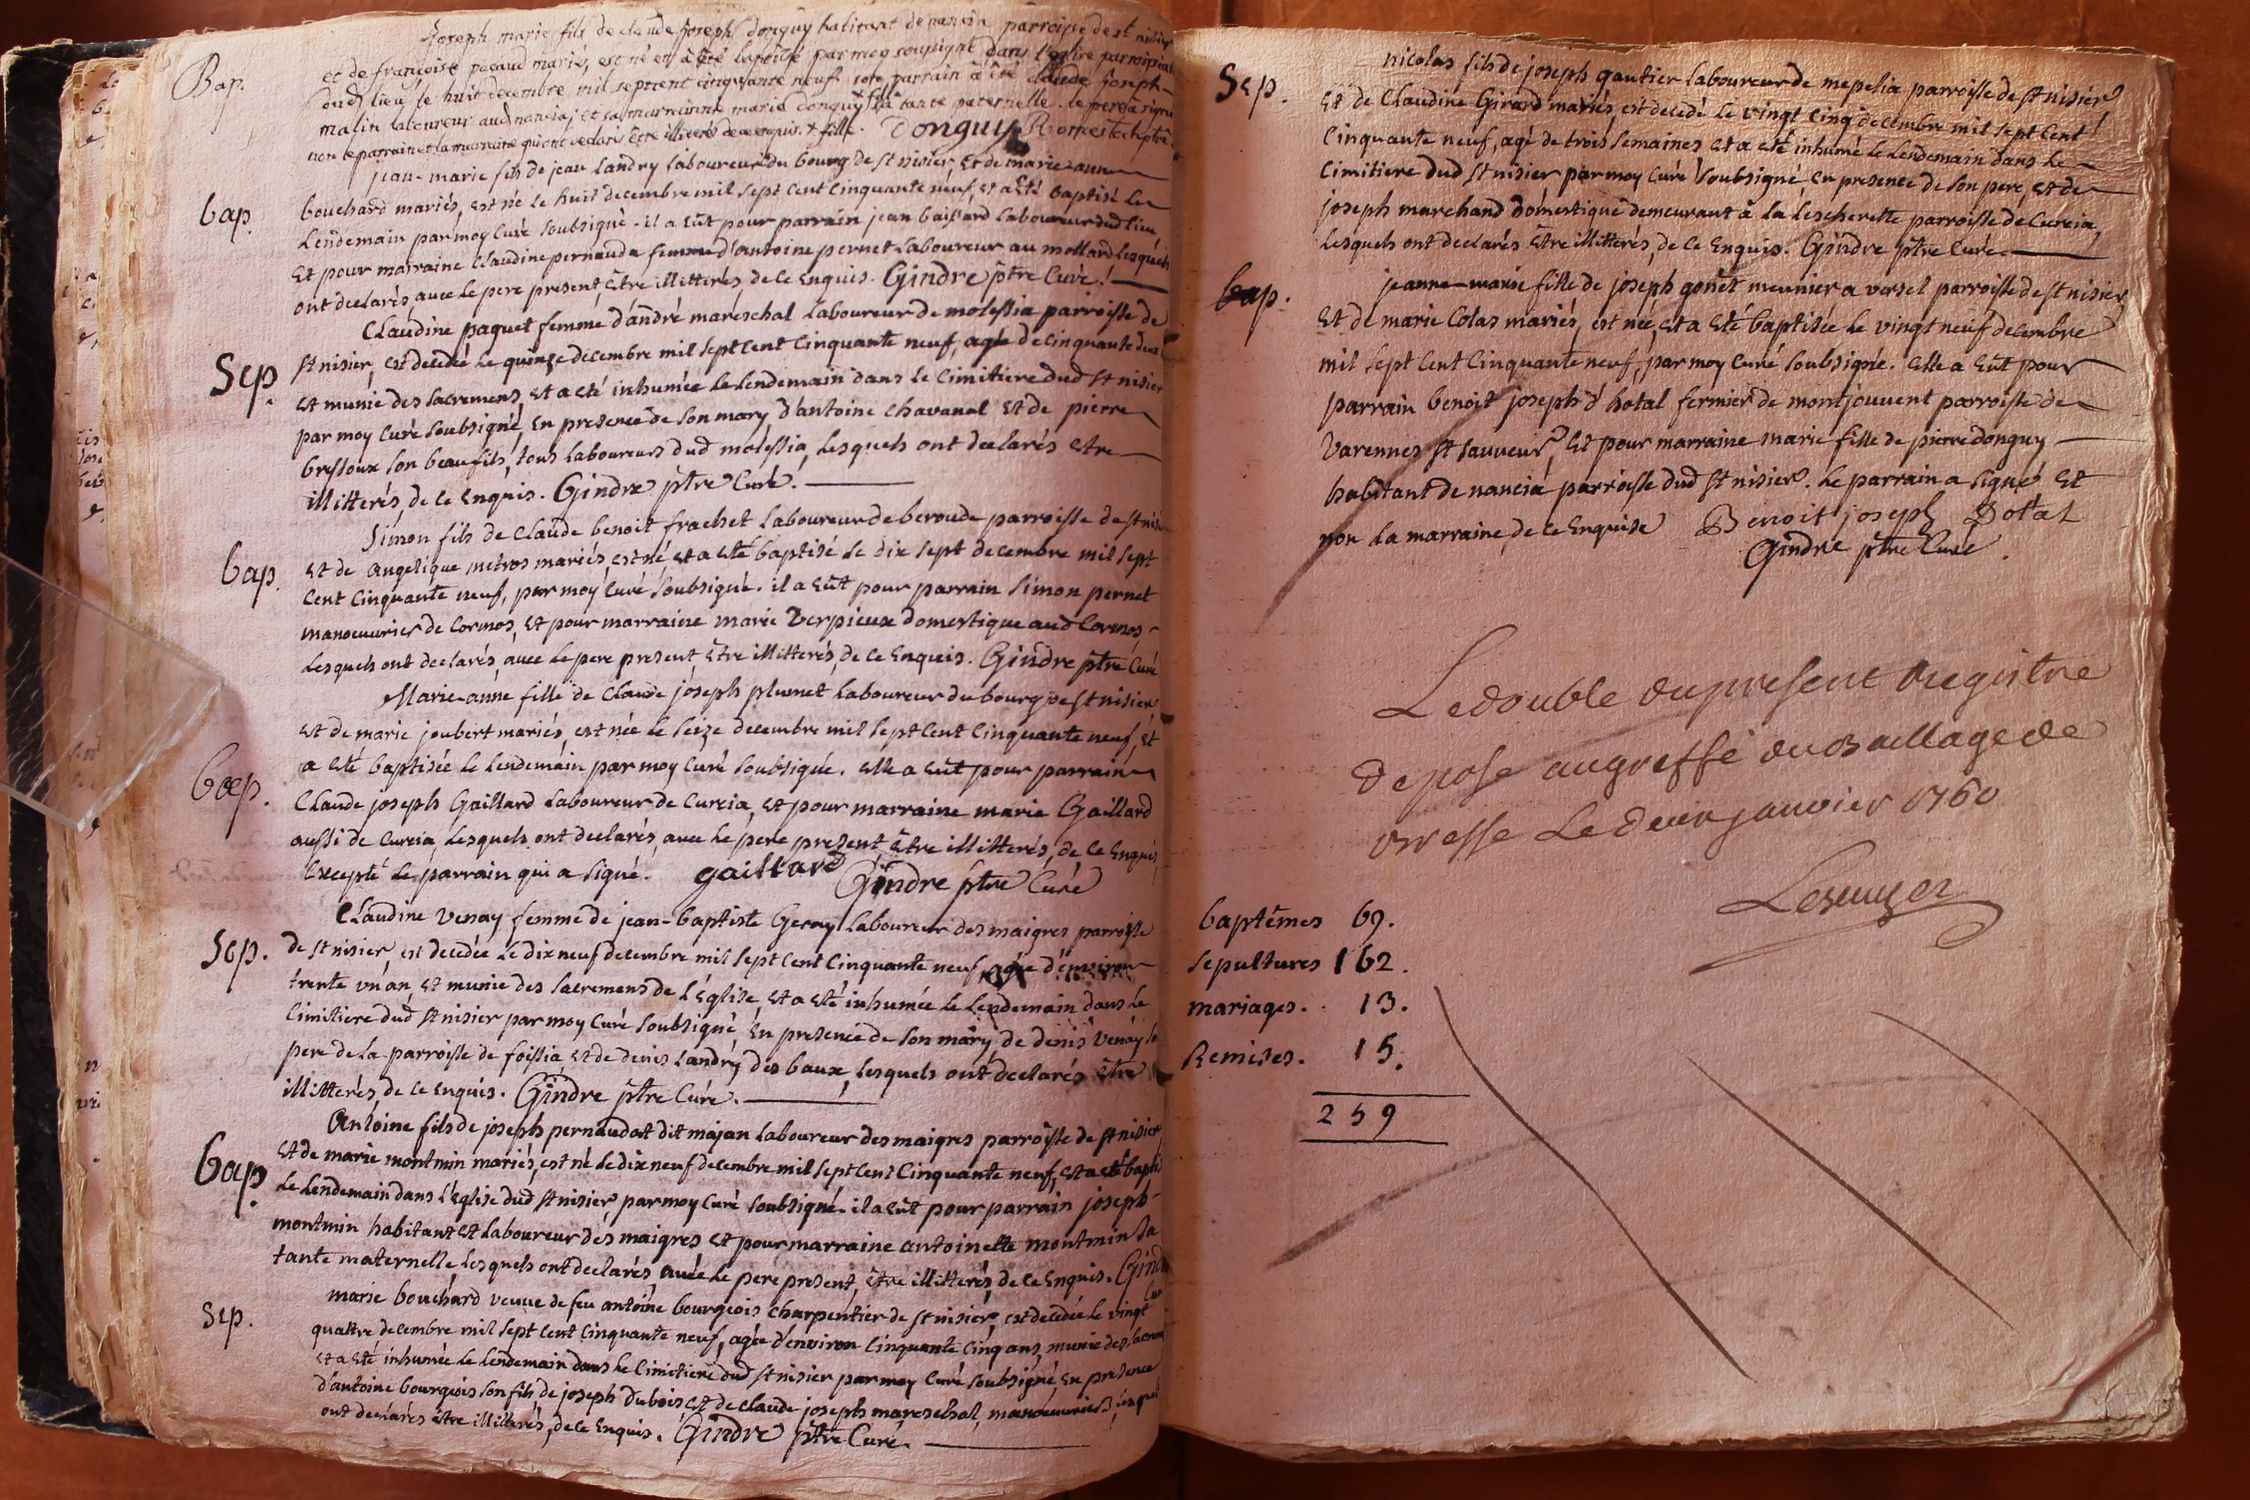 Joseph marie fils de claude joseph donguy habitant de nancia parroisse de st nisier
Bap.
et de françoise pacaud mariés, est né et à été baptisé par moy soussigné dans l'eglise parroissial
dud lieu, le huit decembre mil sept cent cinquante neuf son parrain à été claude joseph
malin laboureur aud nancia, et sa marrainne marie donguy sa tante paternelle. le pere a signé
non le parrain et la marraine qui ont declaré être illiteré de ce enquis. Donguy Romestech ptre
jean-marie fils de jean Landry laboureur du bourg de st nisier, Et de marie-anne
bap.
bouchard mariés, est né le huit decembre mil sept cent cinquante neuf, et a Eté baptisé le
Lendemain par moy curé soubsigné. il a eût pour parrain jean baissard laboureur dud lieu,
Et pour marraine claudine pernauda femme d'antoine pernet Laboureur au mollard Lesquels
ont declarés avec le pere present Etre illitterés de ce enquis. Gindre ptre Curé.
Claudine paquet femme d'andré mareschal Laboureur de molessia parroisse de
Sep.
st nisier, est decedée Le quinze decembre mil sept cent cinquante neuf, agée de cinquante deux
et munie des sacremens, et a eté inhumée Le Lendemain dans Le Cimitiere dud st nisier
par moy Curé soubsigné, En presence de son mary d'antoine Chavanel Et de pierre
bressoux son beaufils, tous Laboureurs dud molessia, Lesquels ont declarés etre
illitterés, de ce Enquis. Gindre ptre Curé.
Simon fils de Claude benoit frachet Laboureur de beroude parroisse de st nisier
bap.
Et de angelique metros mariés, est né, et a eté baptisé Le dix sept decembre mil sept
Cent Cinquante neuf, par moy Curé soubsigné. il a Eût pour parrain Simon pernet
manoeuvrier de Cormos, Et pour marraine marie Verpieux domestique aud Cormos
Lesquels ont declarés, avec Le pere present, Etre illitterés, de ce Enquis. Gindre ptre Curé
Marie-anne fille de Claude joseph plumet Laboureur du bourg de st nisier
bap.
Et de marie joubert mariés, est née Le seize decembre mil sept Cent Cinquante neuf, Et
a eté baptisée Le Lendemain par moy Curé soubsigné. Elle a Eût pour parrain
Claude joseph Gaillard Laboureur de Curcia, Et pour marraine marie Gaillard
aussi de Curcia Lesquels ont declarés avec Le pere present Etre illitterés, de ce Enquis,
Excepté Le parrain qui a signé. gaillard Gindre ptre Curé
Claudine Venay femme de jean-baptiste Geroy Laboureur des maigres parroisse
Sep.
de st nisier, est decedée Le dix neuf decembre mil sept Cent Cinquante neuf, agée d'environ
trente un an, Et munie des sacremens de L'Eglise, Et a eté inhumée Le Lendemain dans Le
Cimitiere dud st nisier par moy Curé soubsigné En presence de son mary de denis Venay son
pere de La parroisse de foissia, Et de denis Landry des baux, Lesquels ont declarés etre
illitterés, de ce Enquis. Gindre ptre Curé.
Antoine fils de joseph pernaudat dit majan Laboureur des maigres parroisse de st nisier
bap.
Et de marie montmin mariés, est né Le dix neuf decembre mil sept Cent Cinquante neuf, Et a eté baptisé
Le Lendemain dans L'Eglise dud st nisier par moy Curé soubsigné. il a Eût pour parrain joseph
montmin habitant Et Laboureur des maigres Et pour marraine antoinette montmin sa
tante maternelle Lesquels ont declarés, avec Le pere present, Etre illitterés, de ce Enquis. Gindre
marie bouchard veuve de feu antoine bourgeois Charpentier de st nisier, est decedée Le vingt
Sep.
quattre decembre mil sept cent cinquante neuf, agée d'environ Cinquante Cinq ans, munie des sacrem
Et a eté inhumée Le Lendemain dans Le Cimitiere dud st nisier par moy Curé soubsigné, En presence
d'antoine bourgeois son fils, de joseph dubois Et de claude joseph mareschal, manoeuvriers, Lesquels
ont declarés Etre illitterés, de ce Enquis. Gindre ptre Curé.
nicolas fils de joseph gautier Laboureur de mepelia parroisse de st nisier
Sep.
Et de Claudine Girard mariés, est decedé Le vingt Cinq decembre mil sept Cent
Cinquante neuf, agé de trois semaines, Et a eté inhumé Le Lendemain dans Le
Cimitiere dud st nisier par moy Curé soubsigné, En presence de son pere, Et de
joseph marchand domestique demeurant à La Lescherette parroisse de Curcia,
Lesquels ont declarés Etre illitterés, de ce Enquis. Gindre ptre Curé.
jeanne-marie fille de joseph gonet meunier a versel parroisse de st nisier,
bap.
Et de marie Colas mariés, est née, et a eté baptisée Le vingt neuf decembre
mil sept Cent Cinquante neuf, par moy Curé soubsigné. Elle a Eût pour
parrain benoit joseph d'hotal fermier de montjouvent parroisse de
Varennes st sauveur, Et pour marraine marie fille de pierre donguy
habitant de nancia parroisse dud st nisier. Le parrain a signé Et
non La marraine, de ce Enquise Benoit joseph Dotal
Gindre ptre Curé.
Le double du present Registre
depose au greffe du Baillage de
Bresse Le deux janvier 1760
baptêmes 69.
sepultures 162.
mariages. 13.
Remises. 15.
259